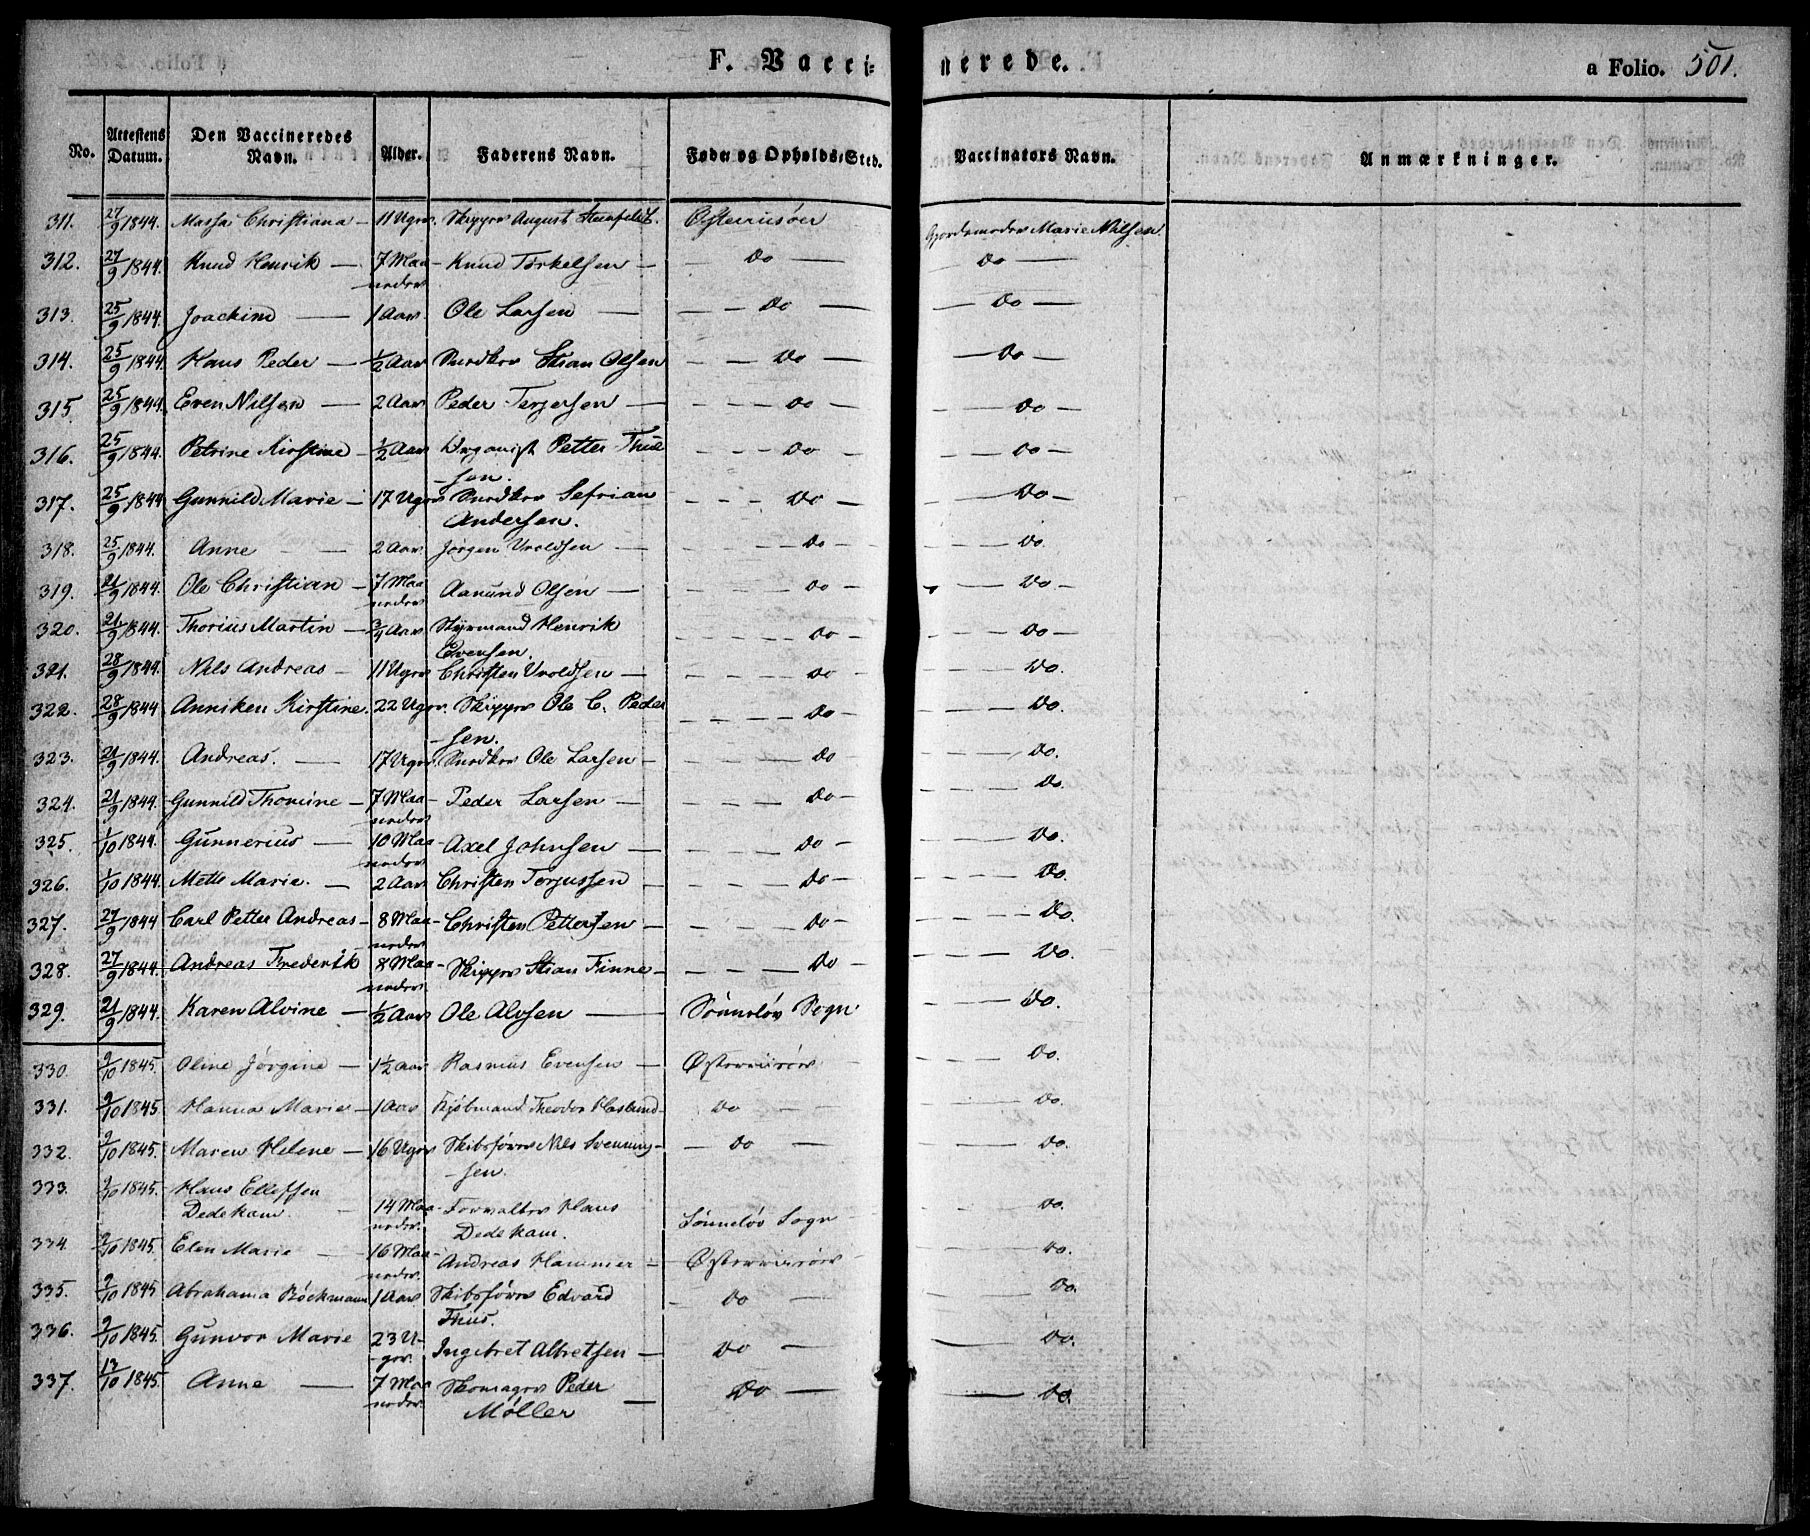 F. Vaccinerede. a Folio. 501.
No. Attestens Datum. Den Vaccineredes Navn. Alder. Faderens Navn. Føde og Opholds-Sted. Vaccinators Navn. Anmærkninger.
311. 27/9 1844. Massa Christiana — 11 Uger. Skipper August Steenfeldt. Østerrisøer Gjordemoder Marie Nilsen.
312. 27/9 1844. Knud Henrik — 7 Maa- Knud Torkelsen — Do — Do —
neder
313. 25/9 1844. Joachim — 1 Aar. Ole Larsen — Do — Do —
314. 25/9 1844. Hans Peder — 1/2 Aar Snedker Stian Olsen — Do — Do —
315. 25/9 1844. Even Nilsen — 2 Aar Peder Terjersen — Do — Do —
316. 25/9 1844. Petrine Kirstine — 1/2 Aar Organist Petter Thue — Do — Do —
sen.
317. 25/9 1844 Gunnild Marie — 17 Uger Snedker Sefrian — Do — Do —
Andersen.
318. 25/9 1844. Anne — 2 Aar. Jørgen Vroldsen — Do — Do.
319. 21/9 1844. Ole Christian — 7 Maa- Aanund Olsen — Do — Do —
neder
320. 21/9 1844. Thorius Martin — 3/4 Aar Styrmand Henrik — Do — Do —
Evensen.
321. 28/9 1844. Nils Andreas — 11 Uger Christen Vroldsen — Do — Do.
322. 28/9 1844 Anniken Kirstine. 22 Uger. Skipper Ole C. Peder — Do — Do.
sen.
323. 21/9 1844. Andreas. — 17 Uger. Snedker Ole Larsen — Do — Do.
324. 21/9 1844. Gunnild Thomine — 7 Maa- Peder Larsen — Do — Do.
neder
325. 1/10 1844. Gunnerius — 10 Maa- Axel Johnsen — Do — Do.
neder
326. 1/10 1844. Mette Marie. — 2 Aar Christen Terjussen — Do — Do.
327. 27/9 1844 Carl Petter Andreas — 8 Maa- Christen Pettersen — Do — Do.
neder
328. 27/9 1844. Andreas Frederik 8 Maa- Skipper Stian Finne — Do — Do.
neder
329. 21/9 1844. Karen Alvine — 1/2 Aar Ole Alvsen — Sønneløv Sogn — Do.
330. 9/10 1845. Oline Jørgine — 1 1/2 Aar Rasmus Evensen — Østerrisøer — Do.
331. 9/10 1845 Hanna Marie — 1 Aar Kjøbmand Theodor Haslund — Do — Do.
332. 9/10 1845. Maren Helene — 16 Uger Skibsfører Nils Svenning- — Do — Do.
sen.
333. 9/10 1845. Hans Ellefsen
Dedekam. — 14 Maa- Forvalter Hans Sønneløv Sogn — Do.
neder. Dedekam.
334. 9/10 1845. Elen Marie — 16 Maa- Andreas Hammer — Østerrisøer — Do.
neder.
335. 9/10 1845 Abrahama Bøckmann 1 Aar Skibsfører Edvard — Do — Do.
Thus.
336. 9/10 1845. Gunvor Marie 23 U- Ingebret Albretsen — Do — Do.
ger.
337. 13/10 1845. Anne — 7 Maa- Skomager Peder — Do — Do.
neder. Møller